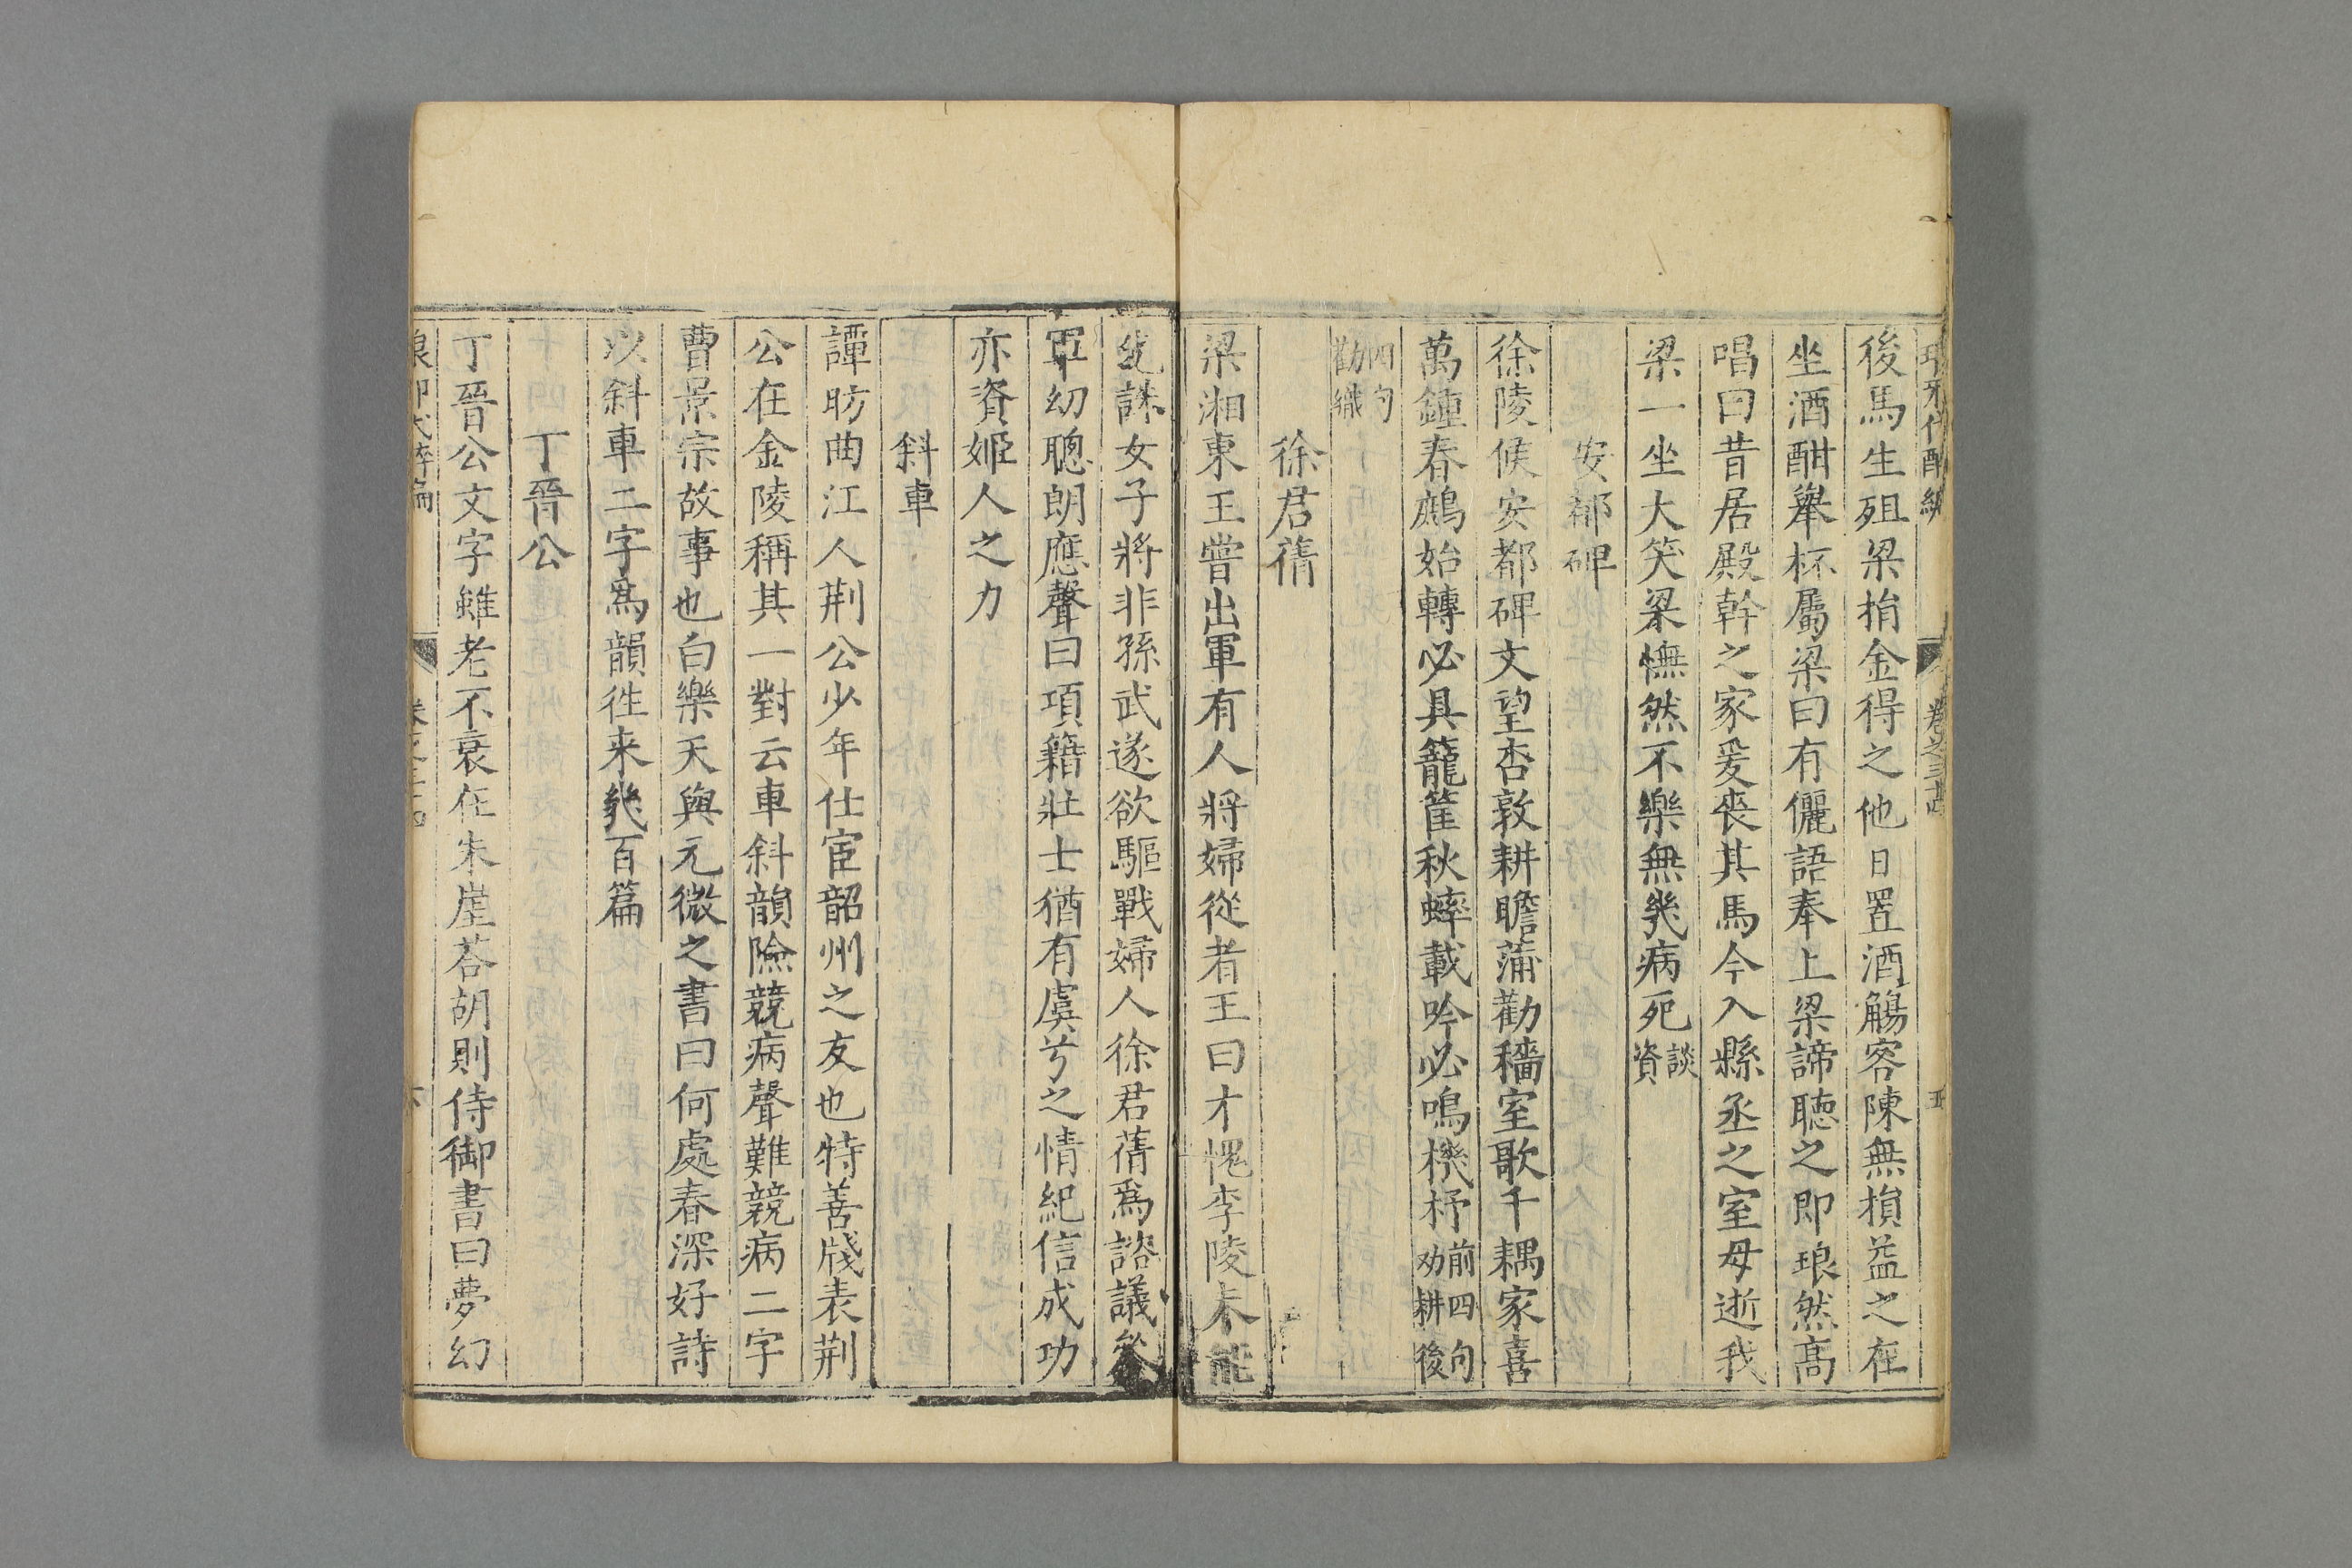 後馬生殂梁捐金得之他日置酒觴客陳無損益之在
坐酒酣舉杯屬梁曰有儷語奉上梁諦聽之即琅然高
唱曰昔居殿幹之家爰喪其馬今入縣丞之室毋逝我
梁一坐大笑梁憮然不樂無幾病死談資
安都碑
徐陵侯安都碑文望杏敦耕瞻蒲勸穡室歌千耦家喜
萬鍾春鷓始轉必具籠筐秋蟀載吟必鳴機杼前四句劝耕後
四句勸織
徐君蒨
梁湘東王嘗出軍有人將婦從者王曰才愧李陵未能
先誅女子將非孫武遂欲驅戰婦人徐君蒨爲諮議叅
軍幼聰朗應聲曰項籍壯士猶有虞兮之情紀信成功
亦資姬人之力
斜車
譚昉曲江人荆公少年仕宦韶州之友也特善牋表荆
公在金陵稱其一對云車斜韻險競病聲難競病二字
曹景宗故事也白樂天與元微之書曰何處春深好詩
以斜車二字爲韻徃来幾百篇
丁晉公
丁晉公文字雖老不衰在朱崖荅胡則侍御書曰夢幻